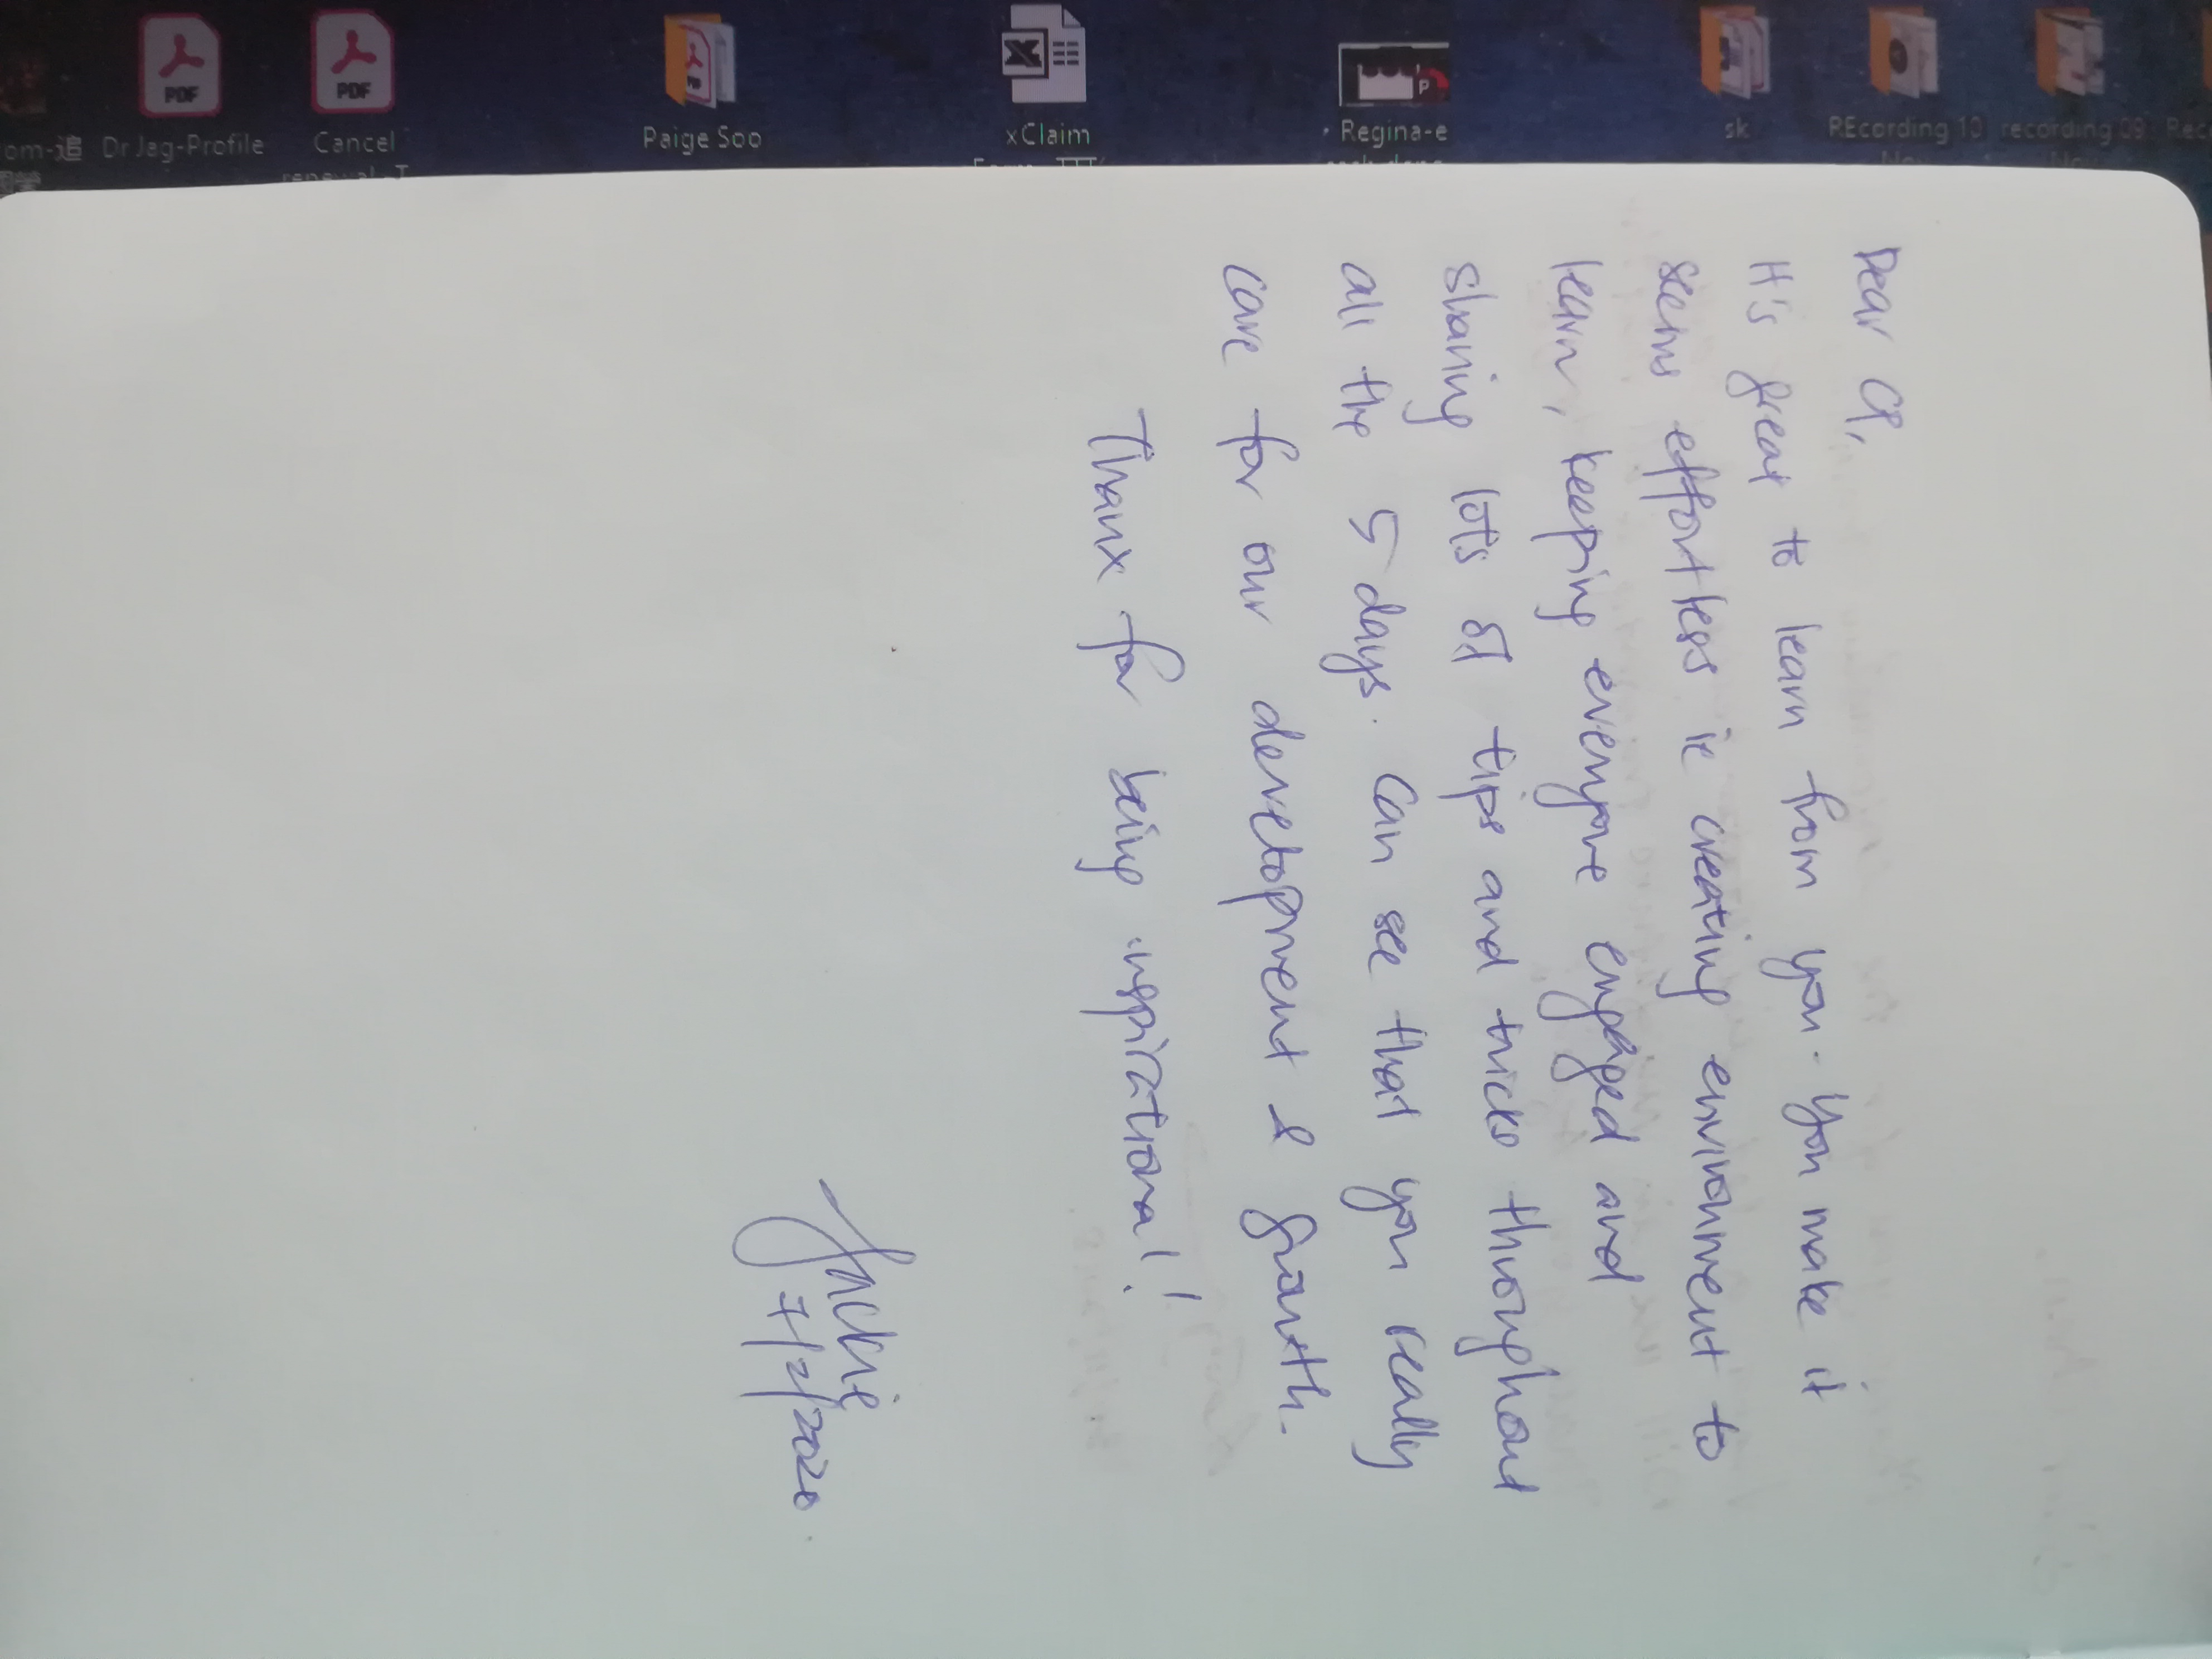 Dr Jag-Profile
Cancel
Paige Soo
xClaim
Regina-e
sk
REcording 10
recording 09
PDF
PDF
Dear CP,
It's great to learn from you. You make it
seems effortless ie creating environment to
learn, keeping everyone engaged and
sharing lots of tips and tricks throughout
all the 5 days. Can see that you really
care for our development & growth.
Thanx for being inspirational!!
Jackie
7/2/2020